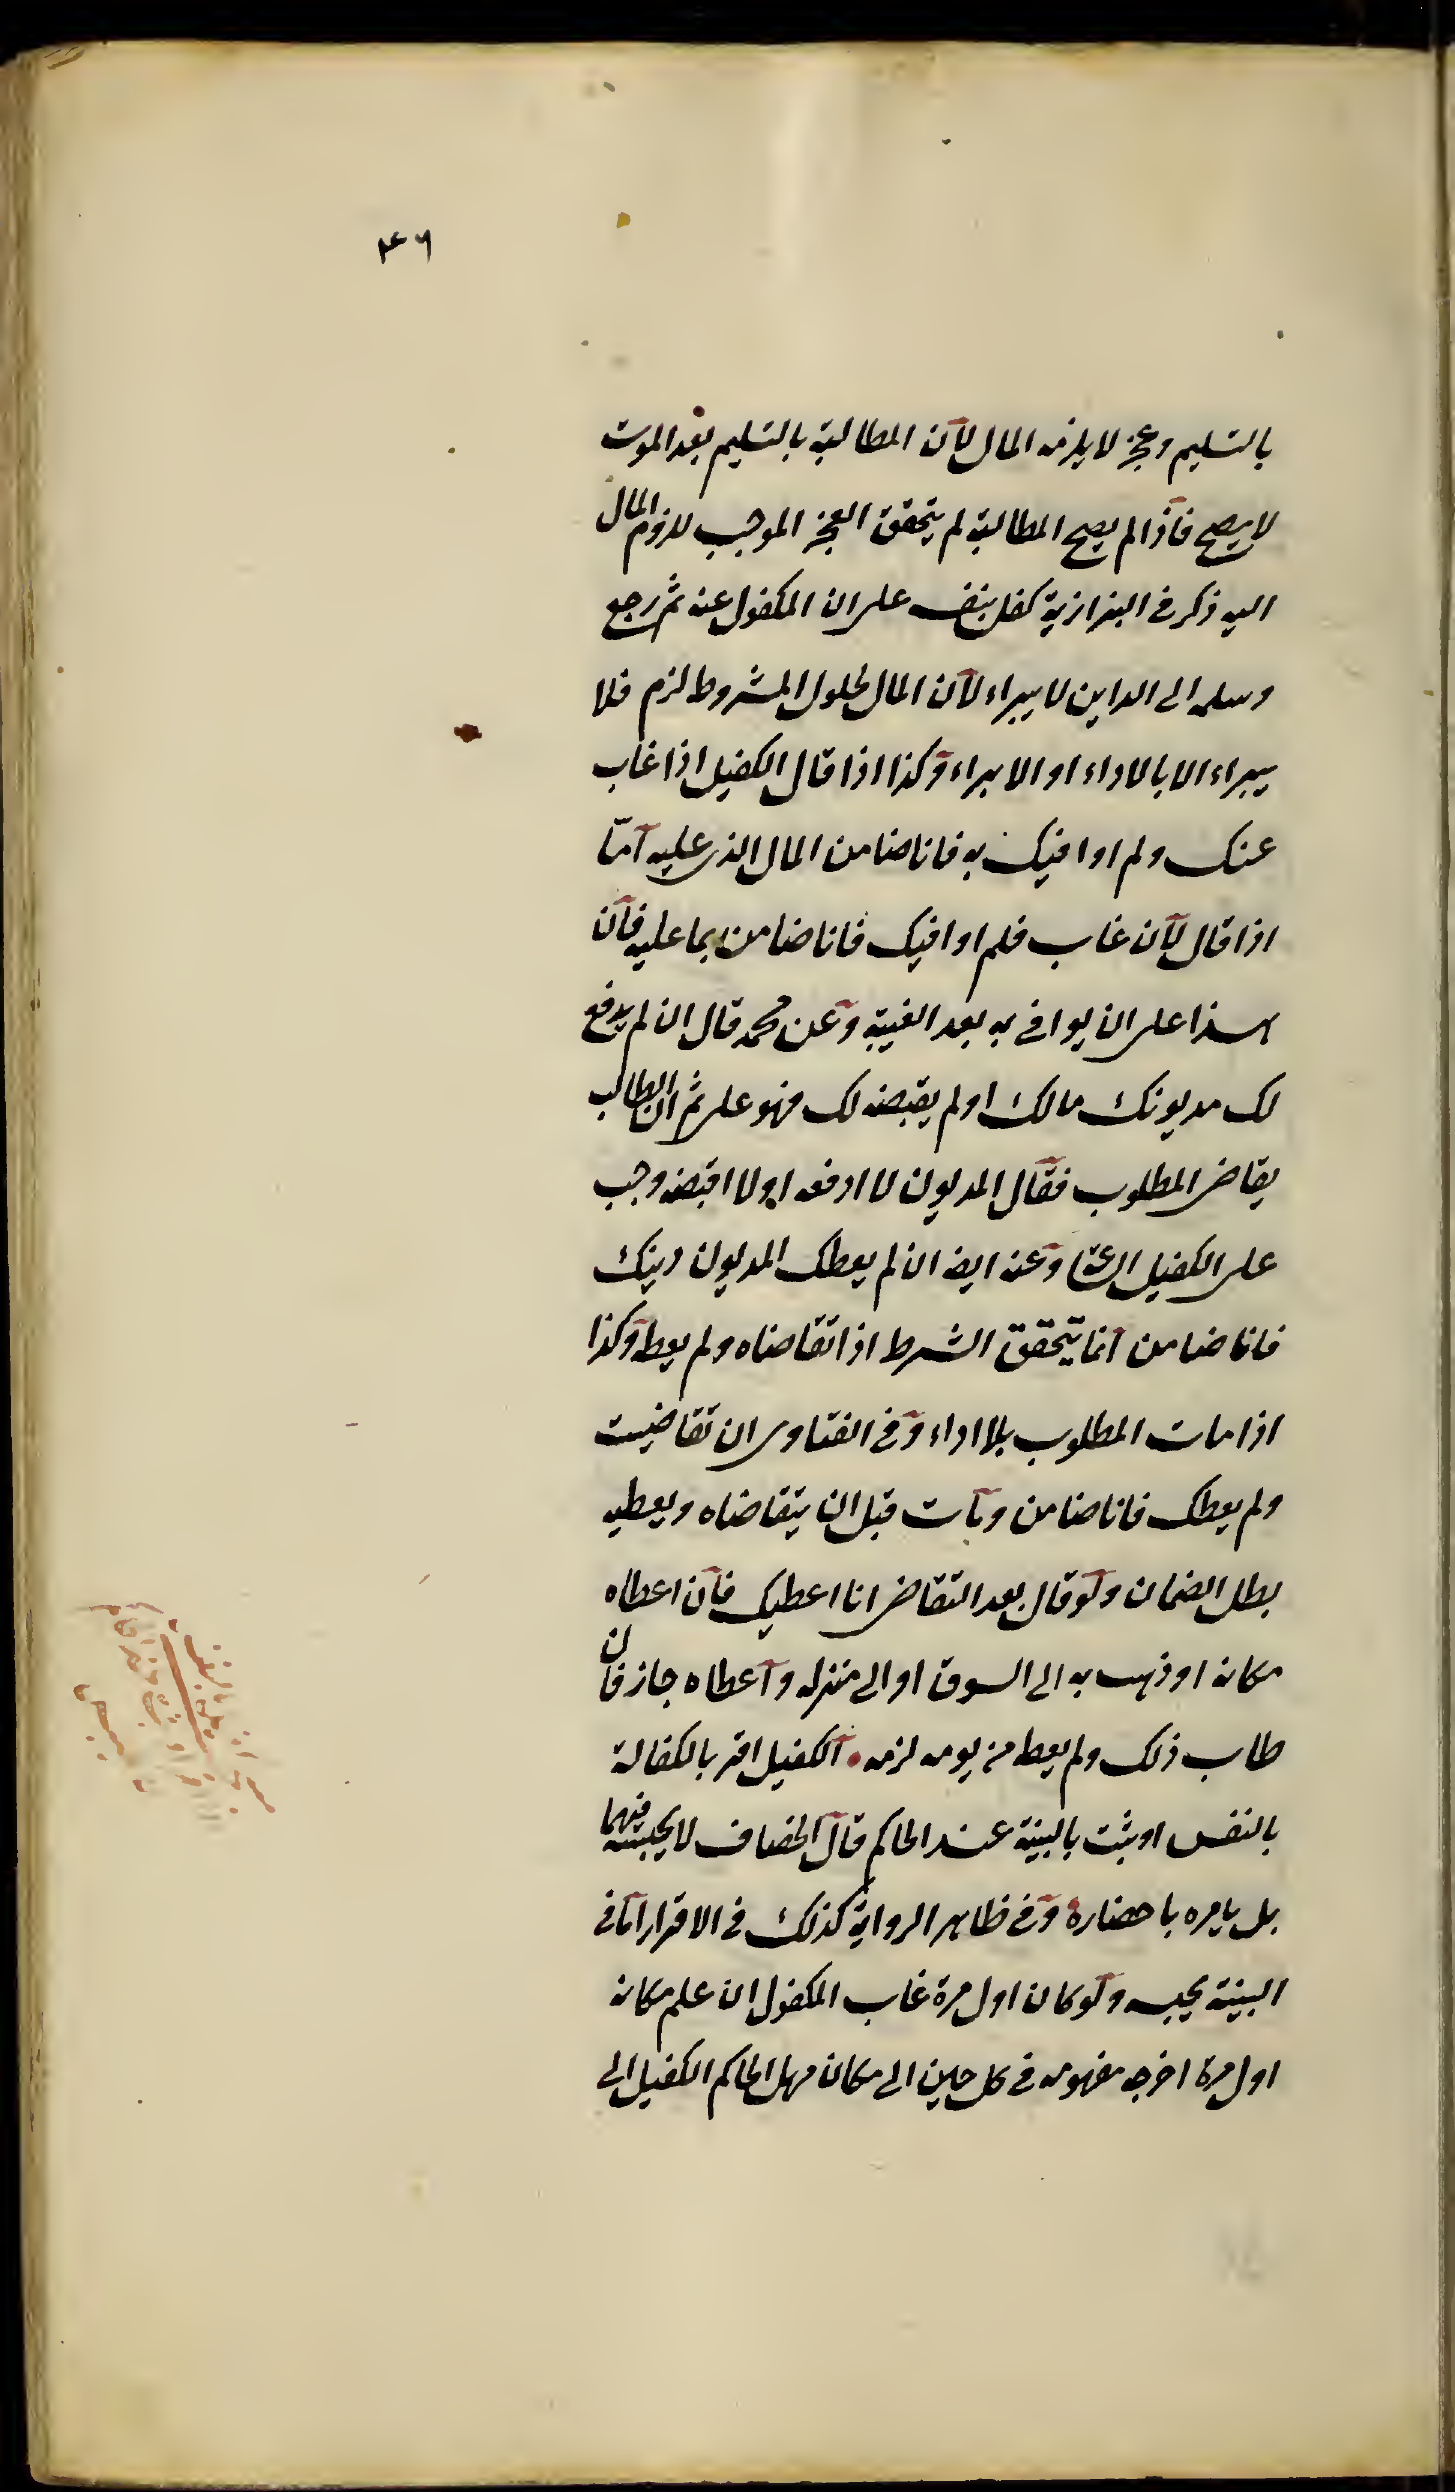 ٤٦
بالتسليم وعجز لا يلزمه المال لان المطالبة بالتسليم بعد الموت
لا يصح فاذا لم يصح المطالبة لم يتحقق العجز الموجب للزوم المال
اليه ذكر في البزازية كفل بنفسه على ان المكفول عنه ثم رجع
وسلمه الى الداين لا يبراء لان المال لحلول المشروط لزم فلا
يبراء الا بالاداء او الابراء وكذا اذا قال الكفيل اذا غاب
عنك ولم اوافيك به فانا ضامن المال الذي عليه اما
اذا قال لان غاب فلم اوافيك فانا ضامن بما عليه فان
هذا على ان يوافى به بعد الغيبة وعن محمد قال ان لم يدفع
لك مديونك مالك او لم يقبضه لك فهو على ثم ان الطالب
يقاضى المطلوب فقال المديون لا ادفعه او لا اقبضه وجب
على الكفيل الساعة وعنه ايضا ان لم يعطك المديون دينك
فانا ضامن انما يتحقق الشرط اذا تقاضاه ولم يعط وكذا
اذا مات المطلوب بلا اداء وفي الفتاوى ان تقاضيت
ولم يعطك فانا ضامن ومات قبل ان يتقاضاه ويعطيه
بطل الضمان ولو قال بعد التقاضى انا اعطيك فان اعطاه
مكانه او ذهب به الى السوق او الى منزله واعطاه جاز فان
طاب ذلك ولم يعط من يومه لزمه الكفيل اقر بالكفالة
بالنفس او ثبت بالبينة عند الحاكم قال الخصاف لا يحبسه فيهما
بل يامره باحضاره وفي ظاهر الرواية كذلك في الاقرار اما في
البينة يحبسه ولو كان اول مرة غاب المكفول ان علم مكانه
اول مرة اخرجه مفهومه في كل حين الى مكان مهل الحاكم الكفيل الى